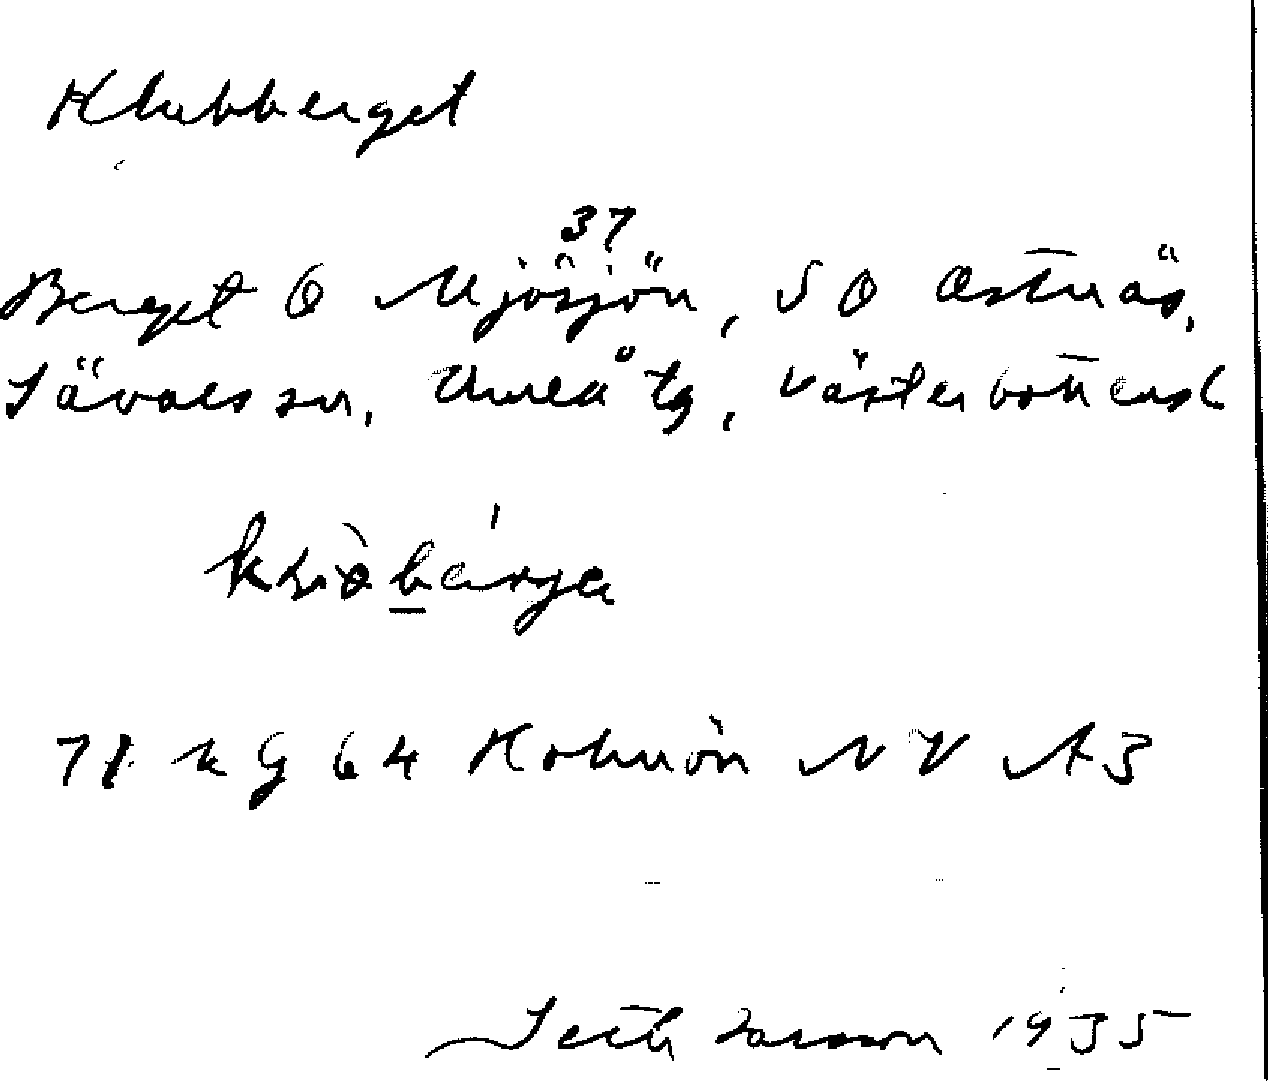 Klubberget
37
Berget Ö Mjösjön, SO Östnäs,
Sävars sn, Umeå tg, Västerbottensl
71 k G 64 Holmön NV A3
Seth Larsson 1935